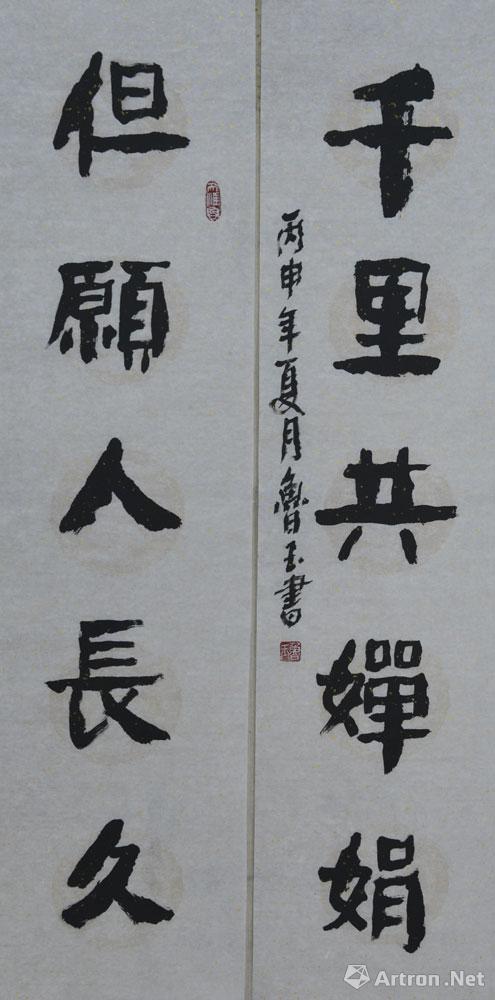 但願人長久
千里共嬋娟
丙申年夏月魯玉書
Artron.Net